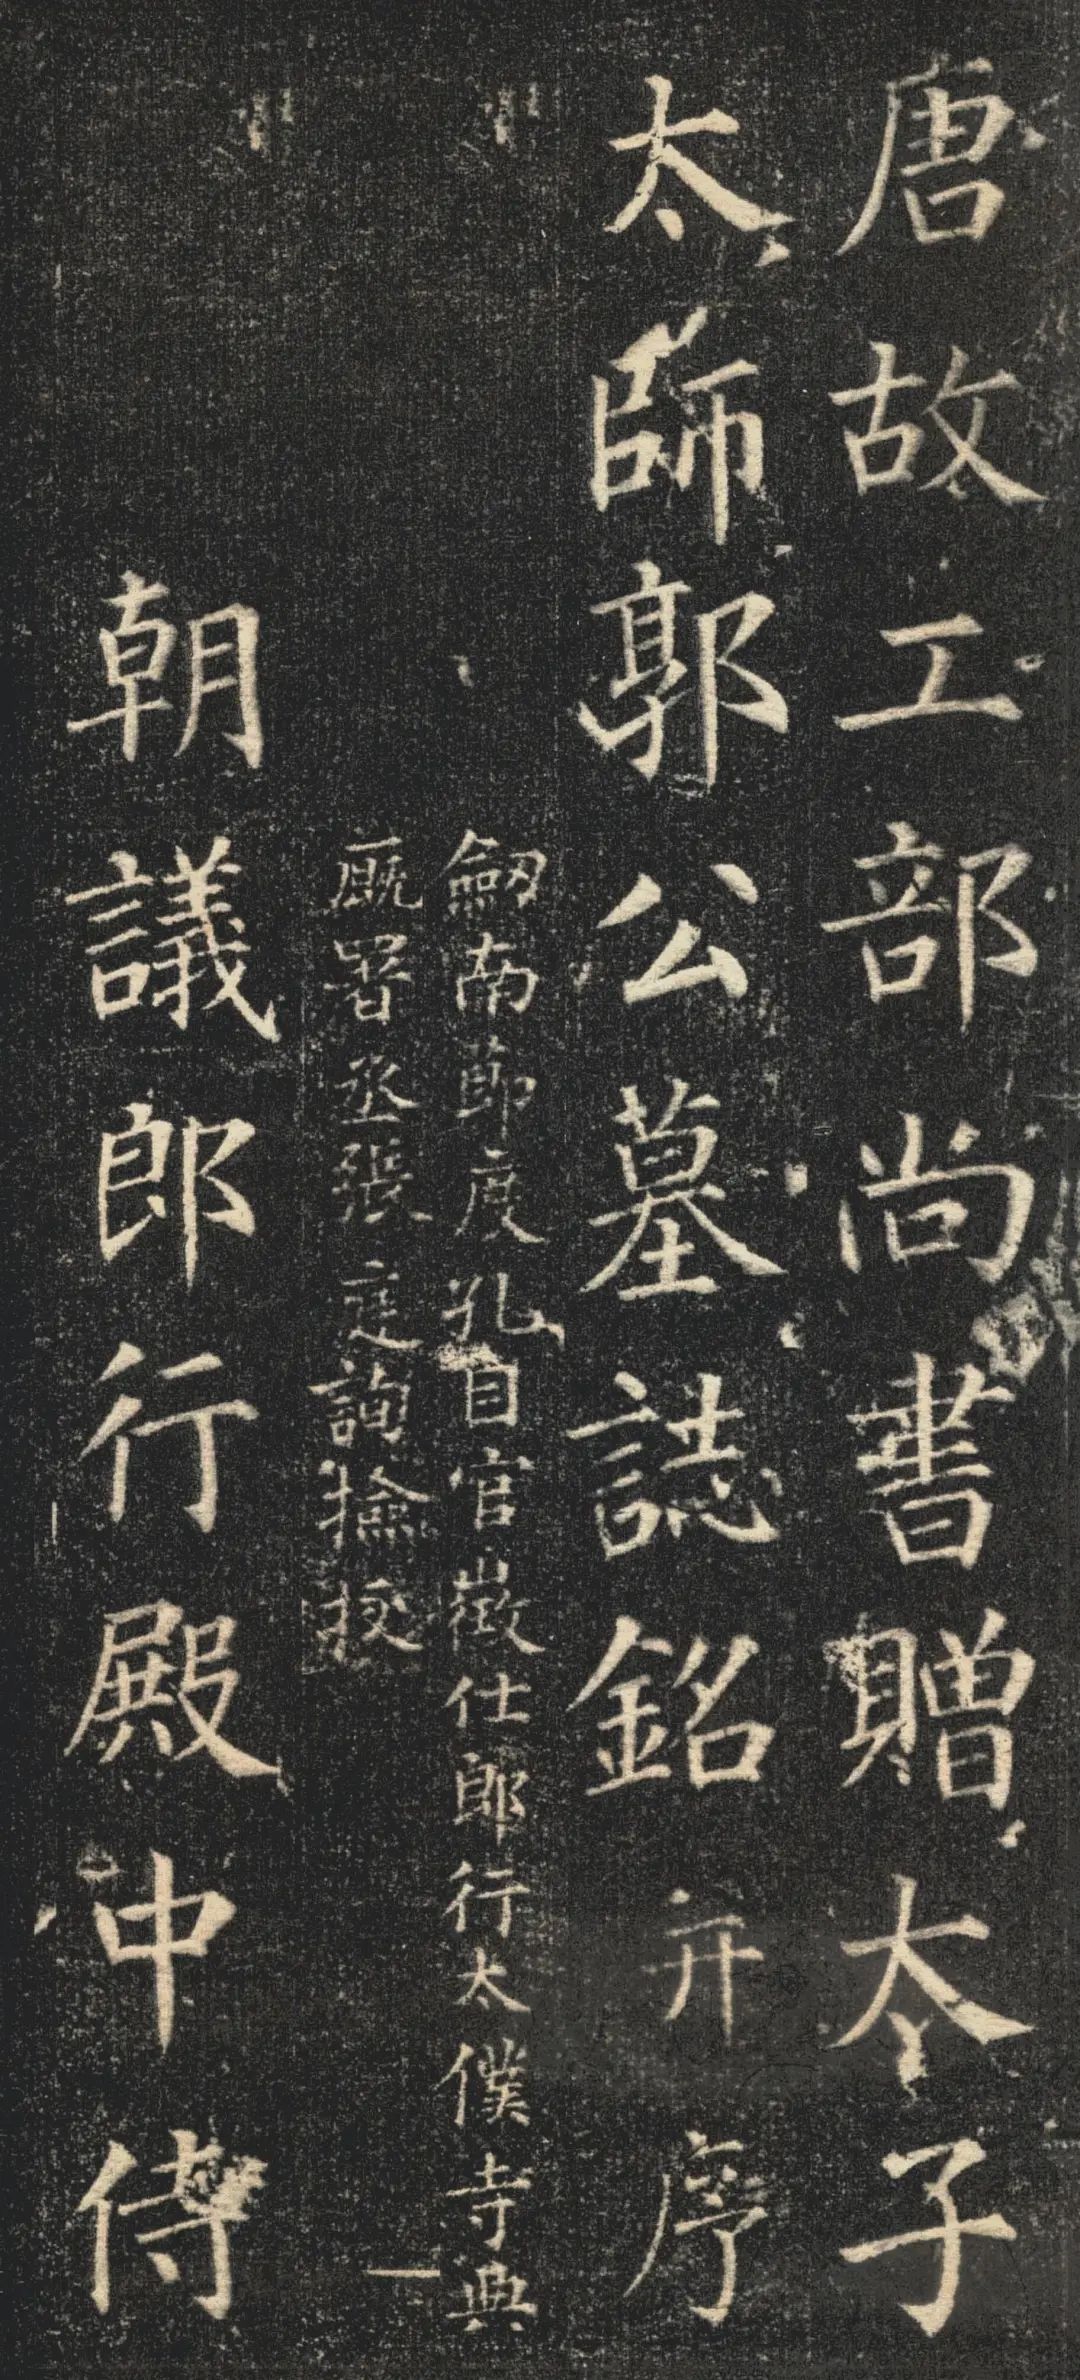 唐故工部尚書贈太子
太師郭公墓誌銘 并序
劒南節度孔目官徵仕郎行太僕寺典
廐署丞張庭詢撿挍
朝議郎行殿中侍